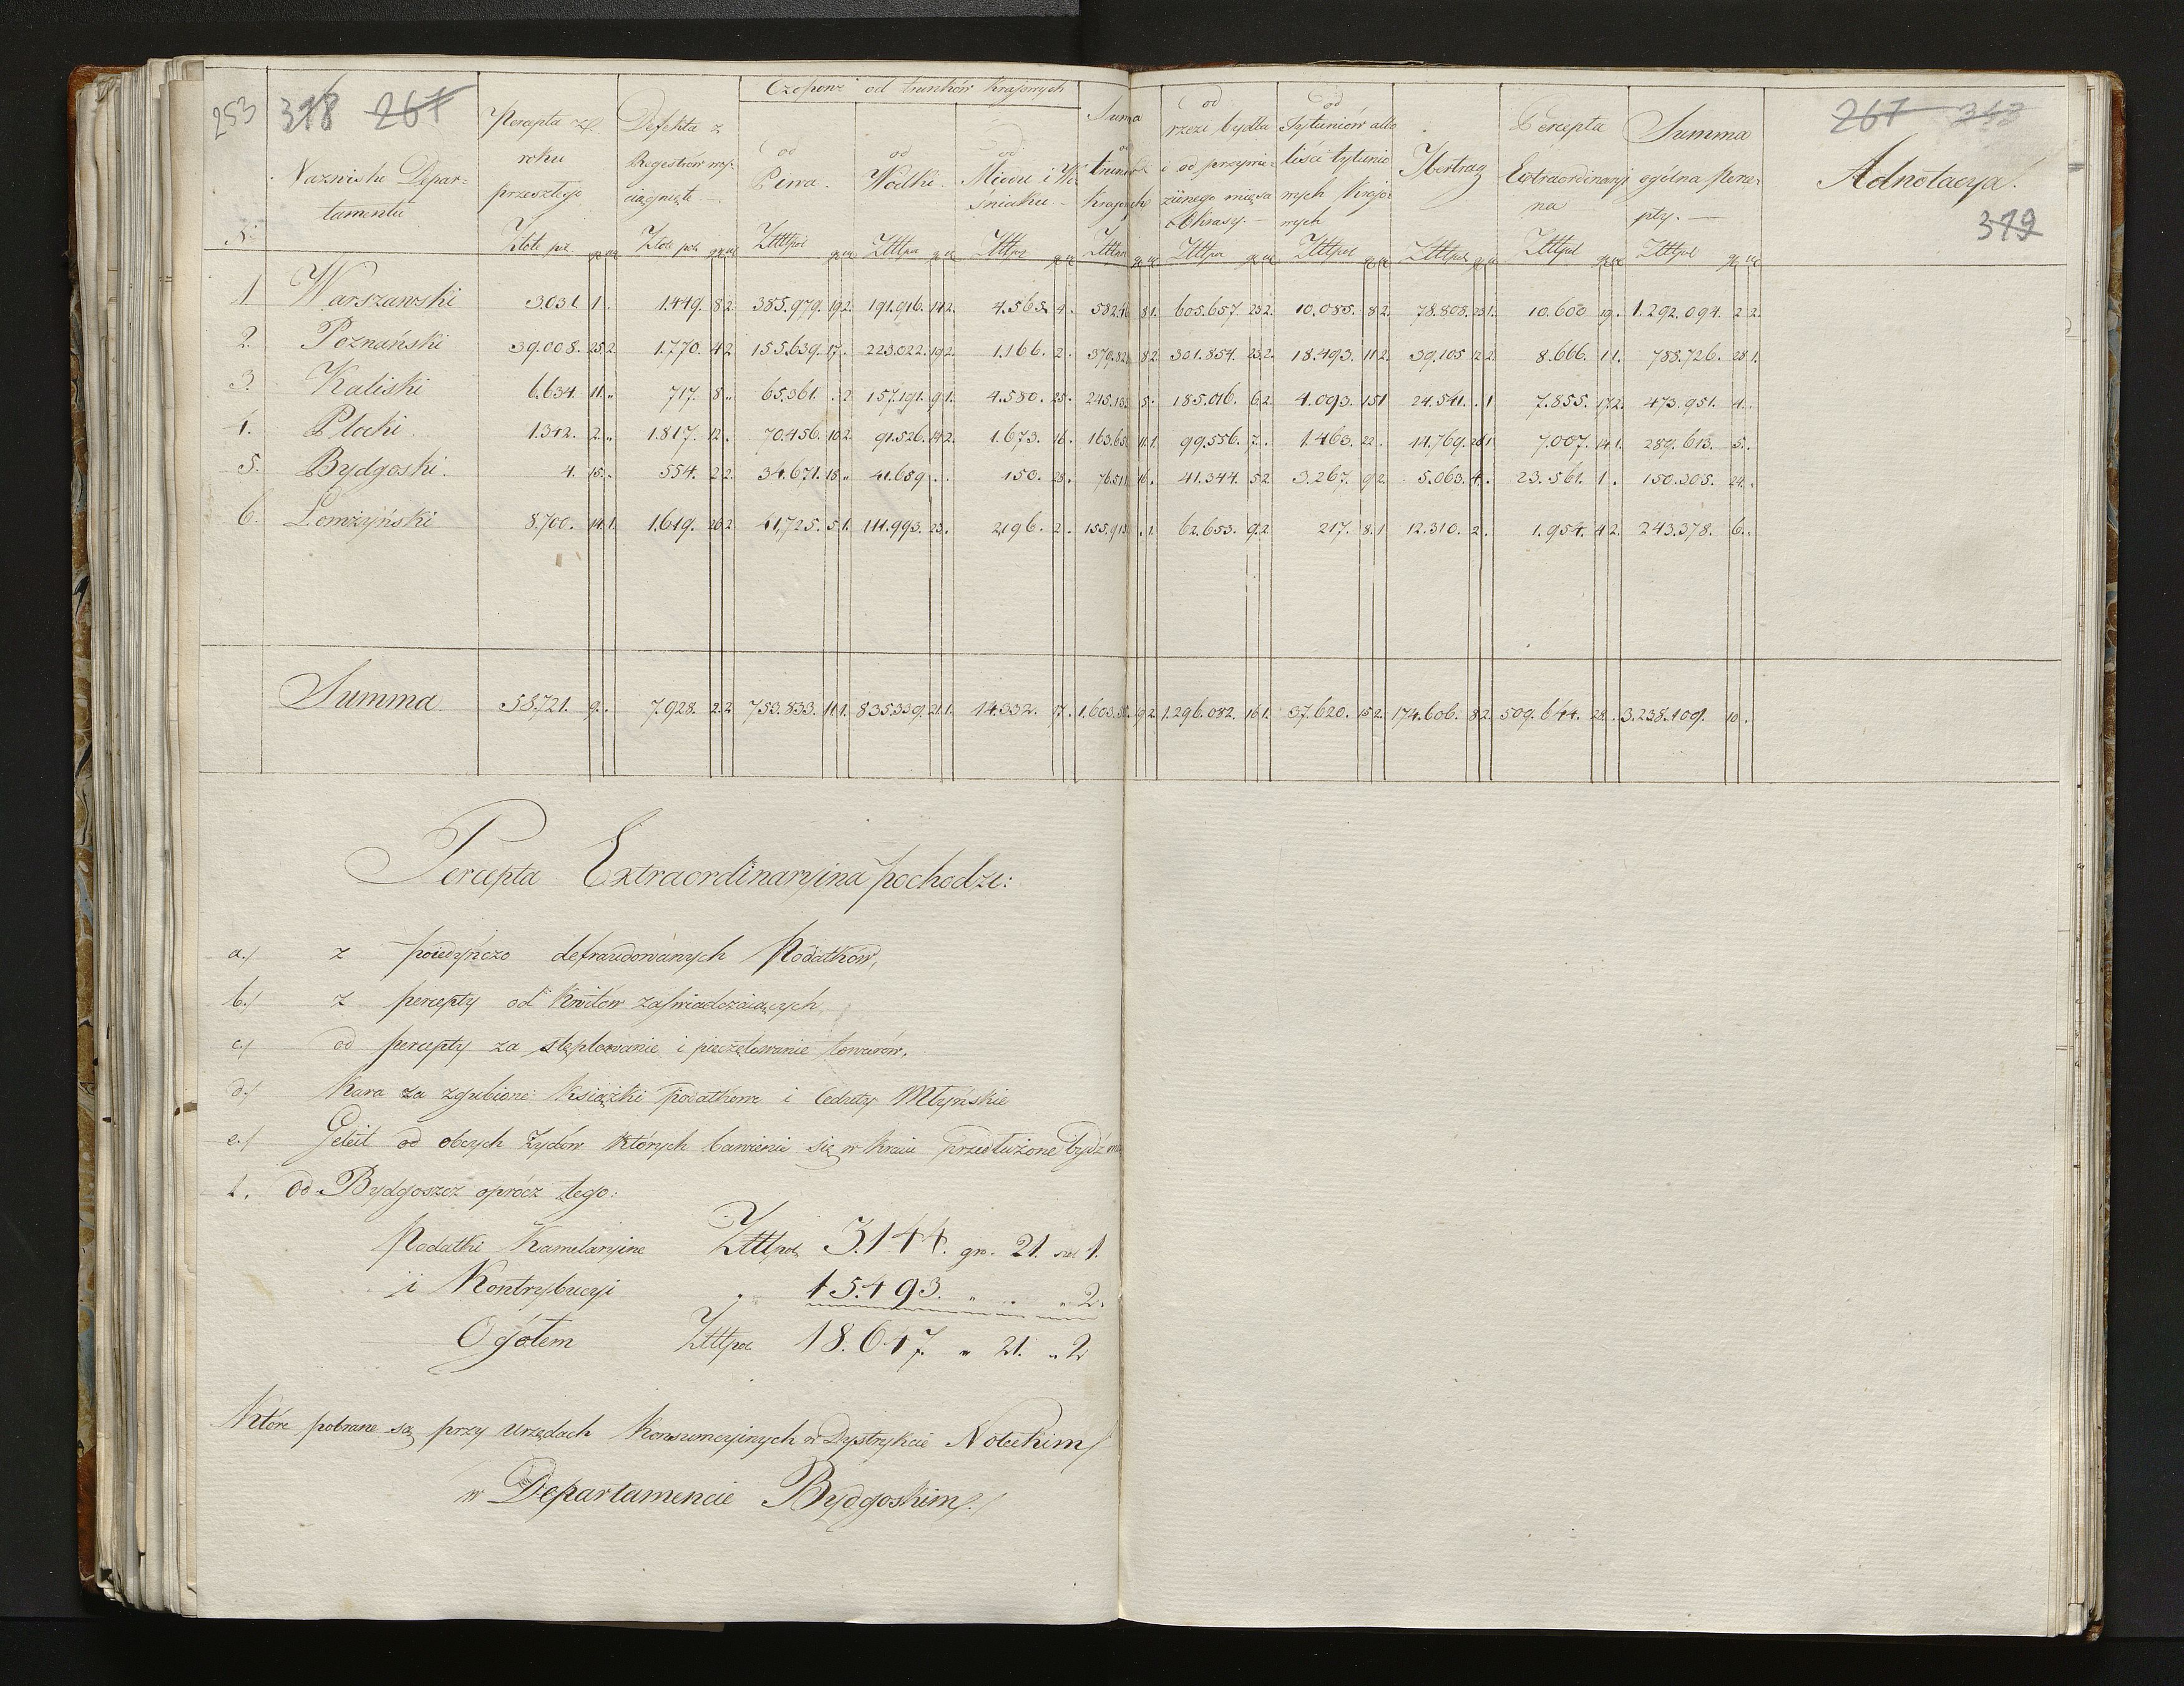 253 318 267 267 253
319
Czopowe od trunków krajowych
N. Nazwiska Departamentu | Percepta z roku przeszłego | Defekta z Regestrów wyciągnięte | od Piwa | od Wódki | od Miodu i Wiśniaku | Suma od trunków krajowych | od rzezi bydła i od przywiezionego mięsa Okrasy | od Tytuniów albo liści tytuniowych krajowych | | Percepta Extraordinaryjna | Summa ogólna percepty | Adnotacya
1 Warszawski 3.031. 1. 1.449. 8 2. 385.979. 19 2. 191.916. 14 2. 4.565. 4. 8 1. 605.657. 23 2. 10.085. 8 2. 78.808. 23 1. 10.600 19. 1.292.094. 2 2.
2. Poznański 39.008. 25 2. 1.770. 4 2 155.639. 17. 223.022. 19 2. 1.166. 2. 8 2. 301.854. 23 2. 18.493. 11 2. 39.105 12 2. 8.666. 1 1. 28 1.
3. Kaliski 6.634. 11. „ 717. 8 „ 65.361. . 2 157.191. 9 1. 4.580. 25. 5. 185.016. 6 2. 4.093. 15 1 24.541. . 1 7.855. 17 2. 473.951. 4. .
4. Płocki 1.342. 2. „ 1.817. 12. 70.456. 10 2. 91.526. 14 2. 1.673. 16. 11 1. 99.556. 7. . 1.463. 22. 14.769. 26 1. 7.007. 14 1. 289.613. 5. .
5. Bydgoski 4. 15. . 554. 2 2. 34.671. 18 „ 41.659 . . 150. 28. 16. 41.344. 5 2. 3.267. 9 2. 5.063. 4. . 23.561. 1. 150.305. 24. .
6. Łomżyński 8.700. 14 1. 1.619. 26 2. 41.725. 5 1. 111.993. 23. 2196. 2. . 1. 62.653. 9 2. 217. 8. 1 12.310. 2. 1.954. 4 2. 243.378. 6. .
Summa 58.721. 9. . 7.928. 2 2 753.833. 11 1. 835.339. 21 1. 14.332. 17. 9 2. 1.296.082. 16 1. 37.620. 15 2. 174.606. 8 2. 28. . 3.238.109. 10. .
Percepta Extraordinaryina pochodzi:
a./ z poiedyńczo defraudowanych Podatków,
b./ z percepty od Kwitów zaświadczaiących,
c./ od percepty za stęplowanie i pieczętowanie towarów,
d./ Kara za zgubione Książki podatkowe i Ceduły Młyńskie
e./ Geleit od obcych Żydów których bawienie się w kraiu przedłużone bydź ma
f. od Bydgoszcz oprócz tego:
Podatki Kamelaryine Złtłpol. 3.144. gr. 21. sze. 1.
i Kontrybucyi „ 15.493. „ „ „ 2.
Ogółem Złtłpol 18.647. „ 21. „ 2
Które pobrane są przy Urzędach Konsumcyinych w Dystrykcie Noteckim
w Departamencie Bydgoskim./.